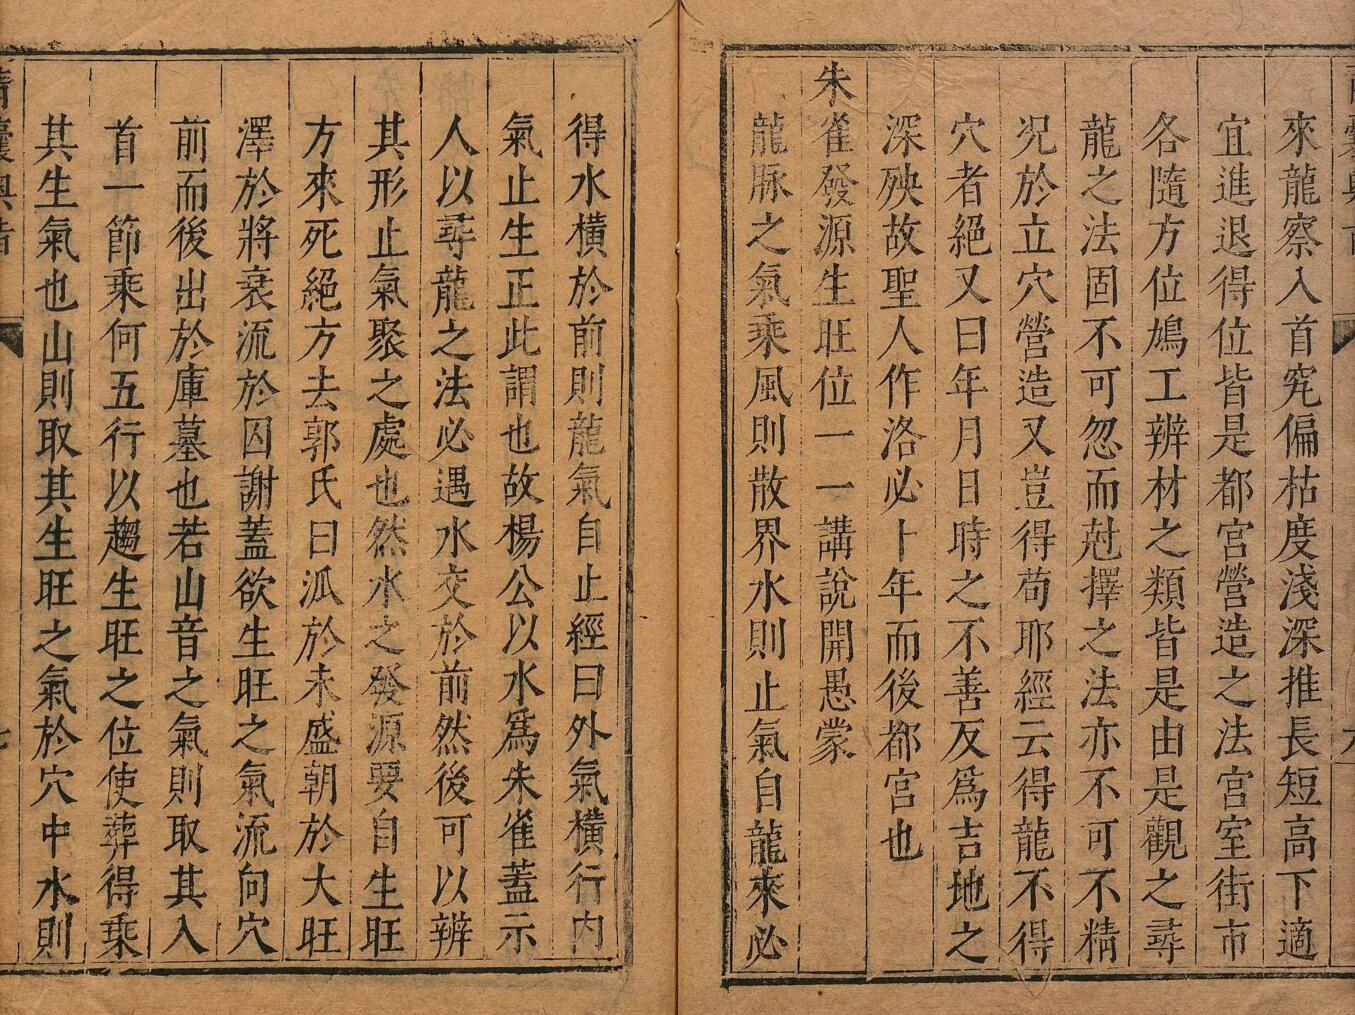 來龍察入首究偏枯度淺深推長短高下適
宜進退得位皆是都宮營造之法宮室街市
各隨方位鳩工辨材之類皆是由是觀之尋
龍之法固不可忽而尅擇之法亦不可不精
況於立穴營造又豈得苟耶經云得龍不得
穴者絕又曰年月日時之不善反爲吉地之
深殃故聖人作洛必十年而後都宮也
朱雀發源生旺位一一講說開愚蒙
龍脉之氣乘風則散界水則止氣自龍來必
得水橫於前則龍氣自止經曰外氣橫行内
氣止生正此謂也故楊公以水爲朱雀蓋示
人以尋龍之法必遇水交於前然後可以辨
其形止氣聚之處也然水之發源要自生旺
方來死絕方去郭氏曰泒於未盛朝於大旺
澤於將衰流於囚謝蓋欲生旺之氣流向穴
前而後出於庫墓也若山音之氣則取其入
首一節乘何五行以趨生旺之位使葬得乘
其生氣也山則取其生旺之氣於穴中水則
囊奧旨
七